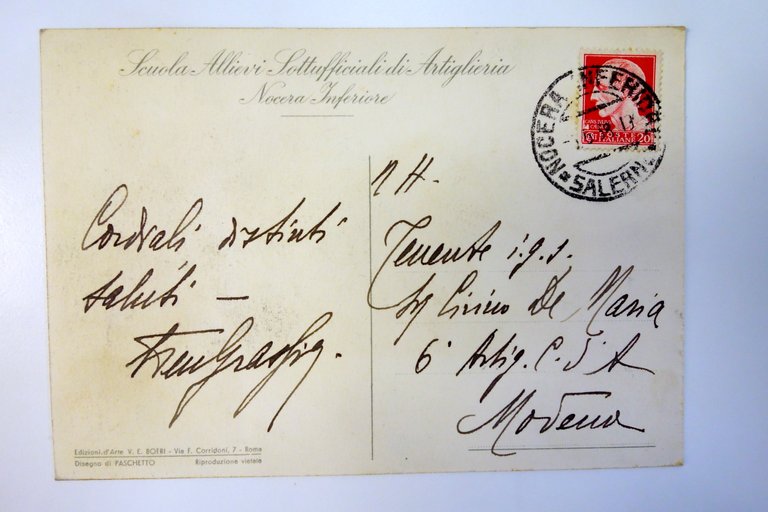 Scuola Allievi Sottufficiali di Artiglieria
Nocera Inferiore
POSTE
ITALIANE 20
NOCERA INFERIORE
* SALERNO *
N H.
Cordiali distinti
saluti —
Tenente i.g.s.
Cirino De Maria
6° Artig. C. d'A
Modena
Edizioni d'Arte V. E. BOERI - Via F. Corridoni, 7 - Roma
Disegno di PASCHETTO Riproduzione vietata